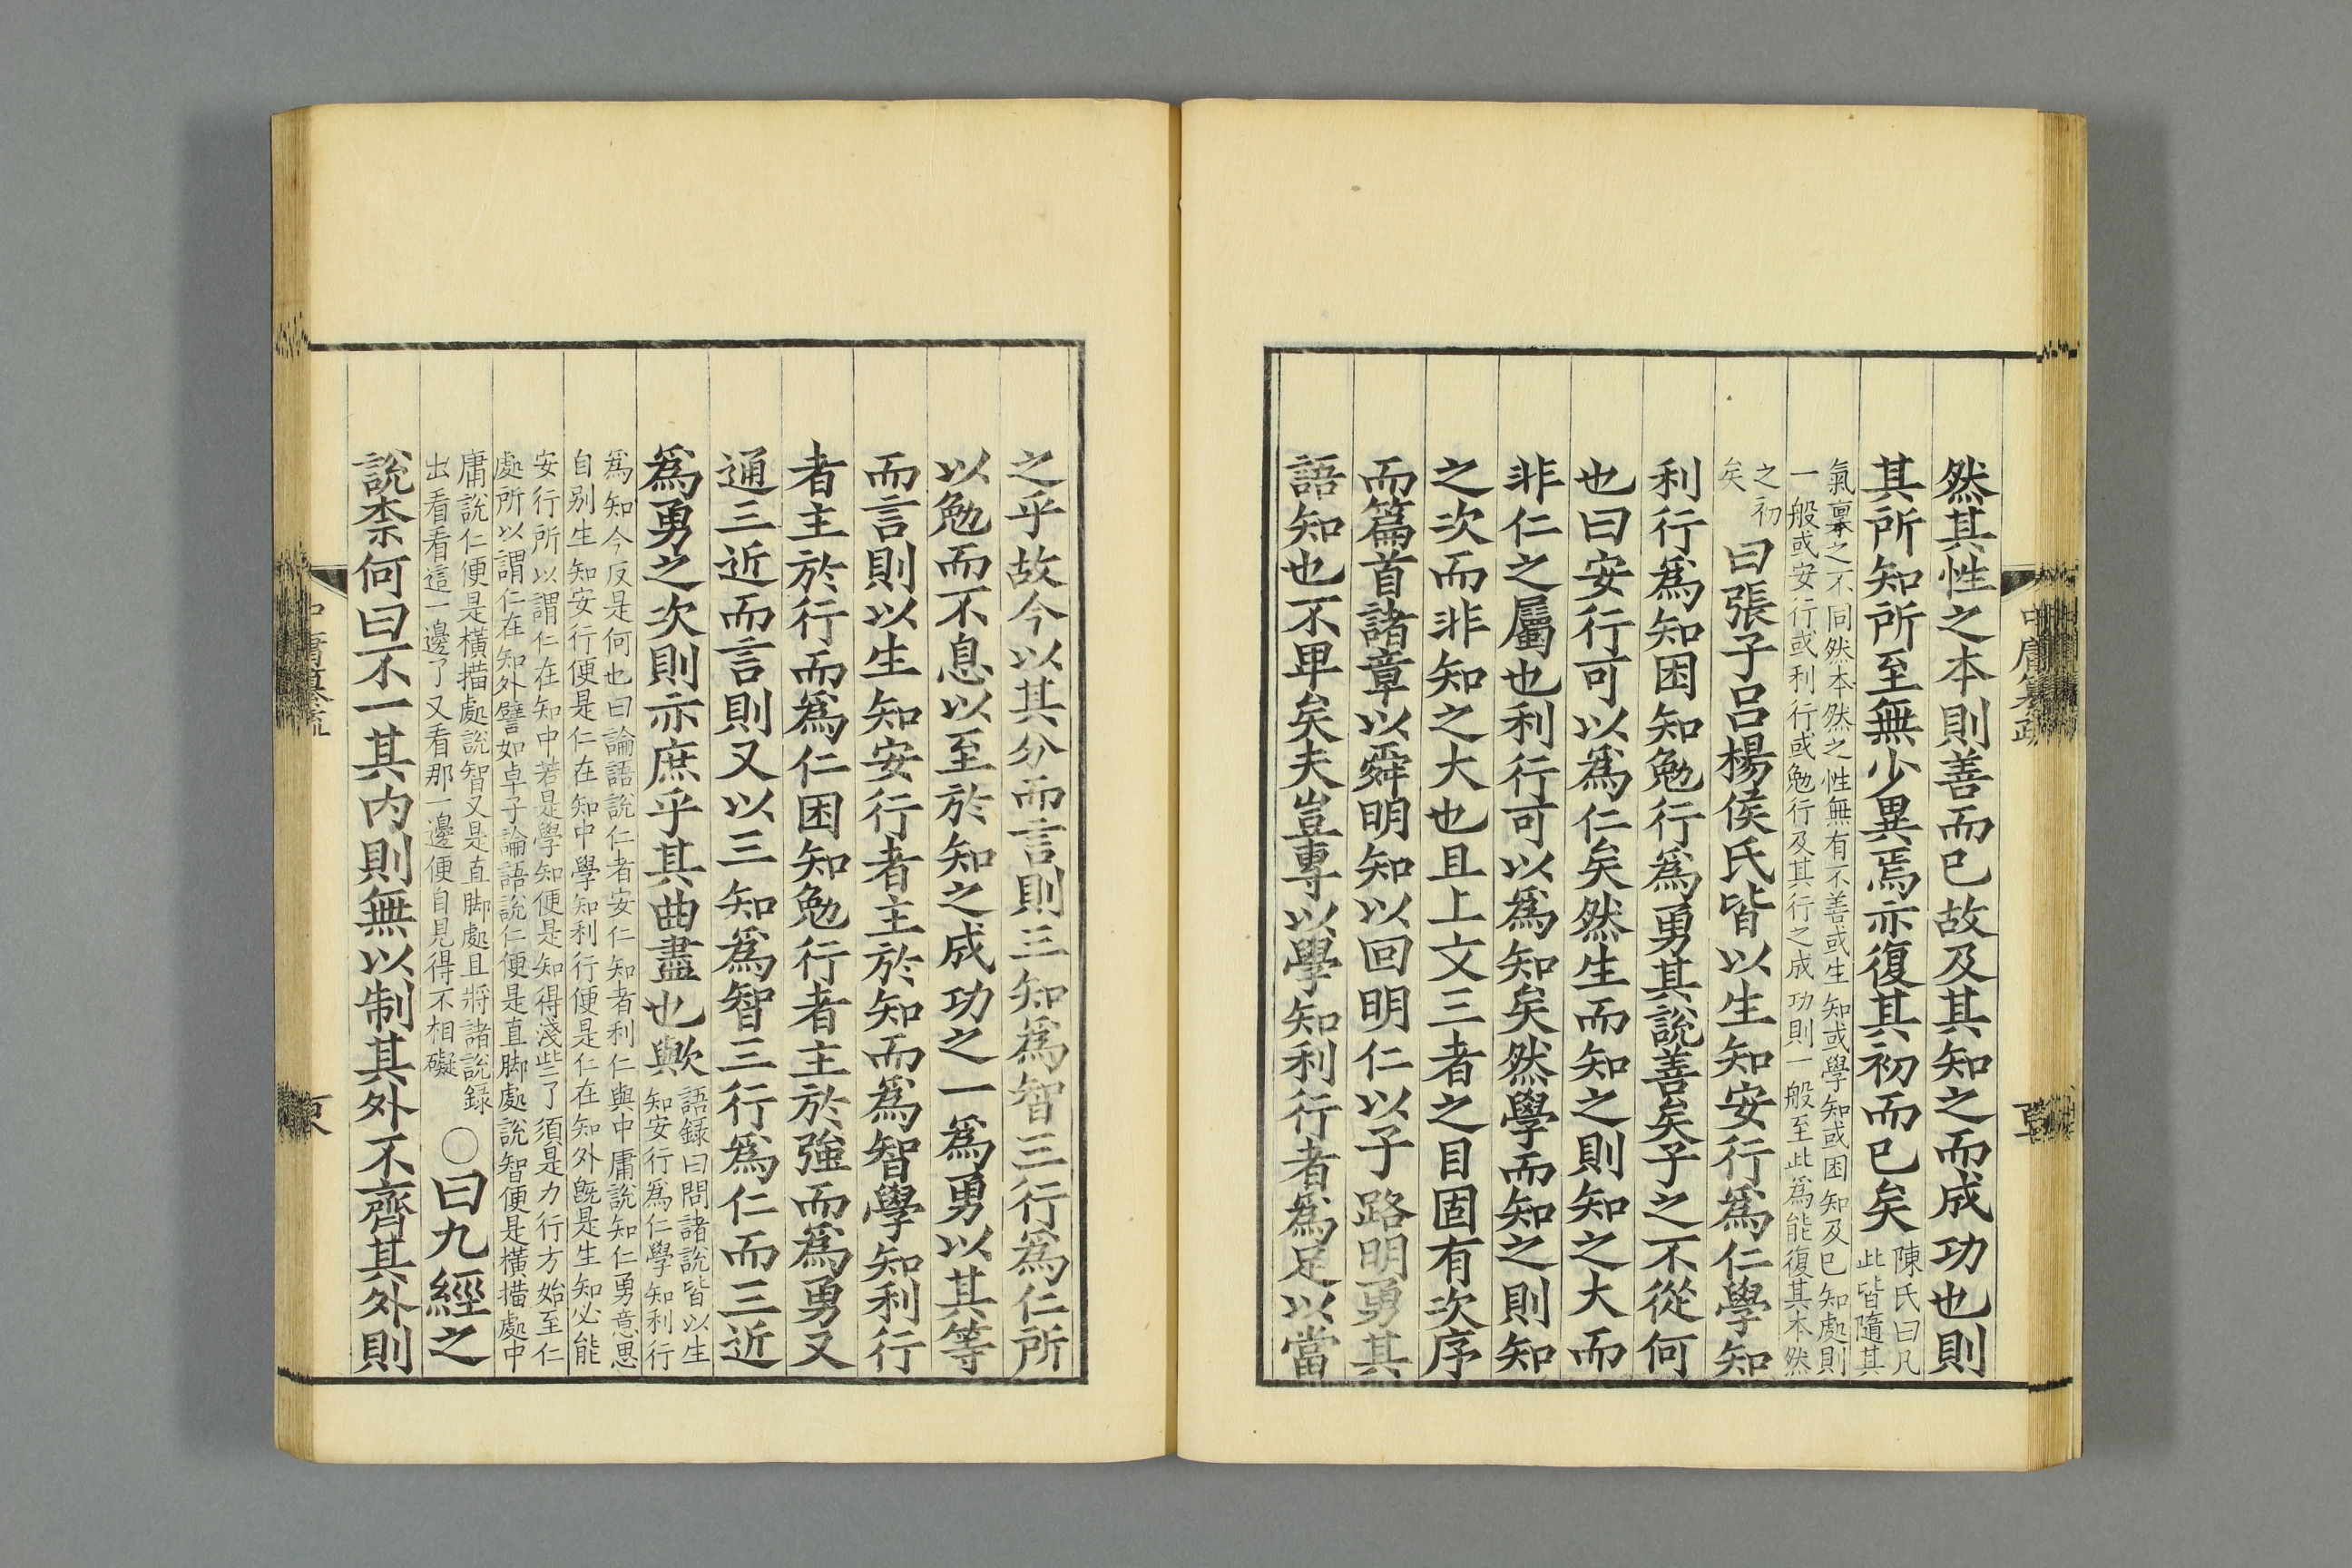 然其性之本則善而已故及其知之而成功也則
其所知所至無少異焉亦復其初而已矣
陳氏曰凡
此皆隨其
氣稟之不同然本然之性無有不善或生知或學知或困知及已知處則
一般或安行或利行或勉行及其行之成功則一般至此為能復其本然
之初
矣
曰張子呂楊侯氏皆以生知安行爲仁學知
利行爲知困知勉行爲勇其說善矣子之不從何
也曰安行可以爲仁矣然生而知之則知之大而
非仁之屬也利行可以爲知矣然學而知之則知
之次而非知之大也且上文三者之目固有次序
而篇首諸章以舜明知以回明仁以子路明勇其
語知也不卑矣夫豈專以學知利行者爲足以當
中庸纂疏
之乎故今以其分而言則三知爲智三行爲仁所
以勉而不息以至於知之成功之一爲勇以其等
而言則以生知安行者主於知而爲智學知利行
者主於行而爲仁困知勉行者主於強而爲勇又
通三近而言則又以三知爲智三行爲仁而三近
爲勇之次則亦庶乎其曲盡也歟
語録曰問諸說皆以生
知安行爲仁學知利行
爲知今反是何也曰論語說仁者安仁知者利仁與中庸說知仁勇意思
自别生知安行便是仁在知中學知利行便是仁在知外旣是生知必能
安行所以謂仁在知中若是學知便是知得淺些了須是力行方始至仁
處所以謂仁在知外譬如卓子論語說仁便是直脚處說智便是橫描處中
庸說仁便是橫描處說智又是直脚處且將諸說録
出看看這一邊了又看那一邊便自見得不相礙
○曰九經之
說柰何曰不一其內則無以制其外不齊其外則